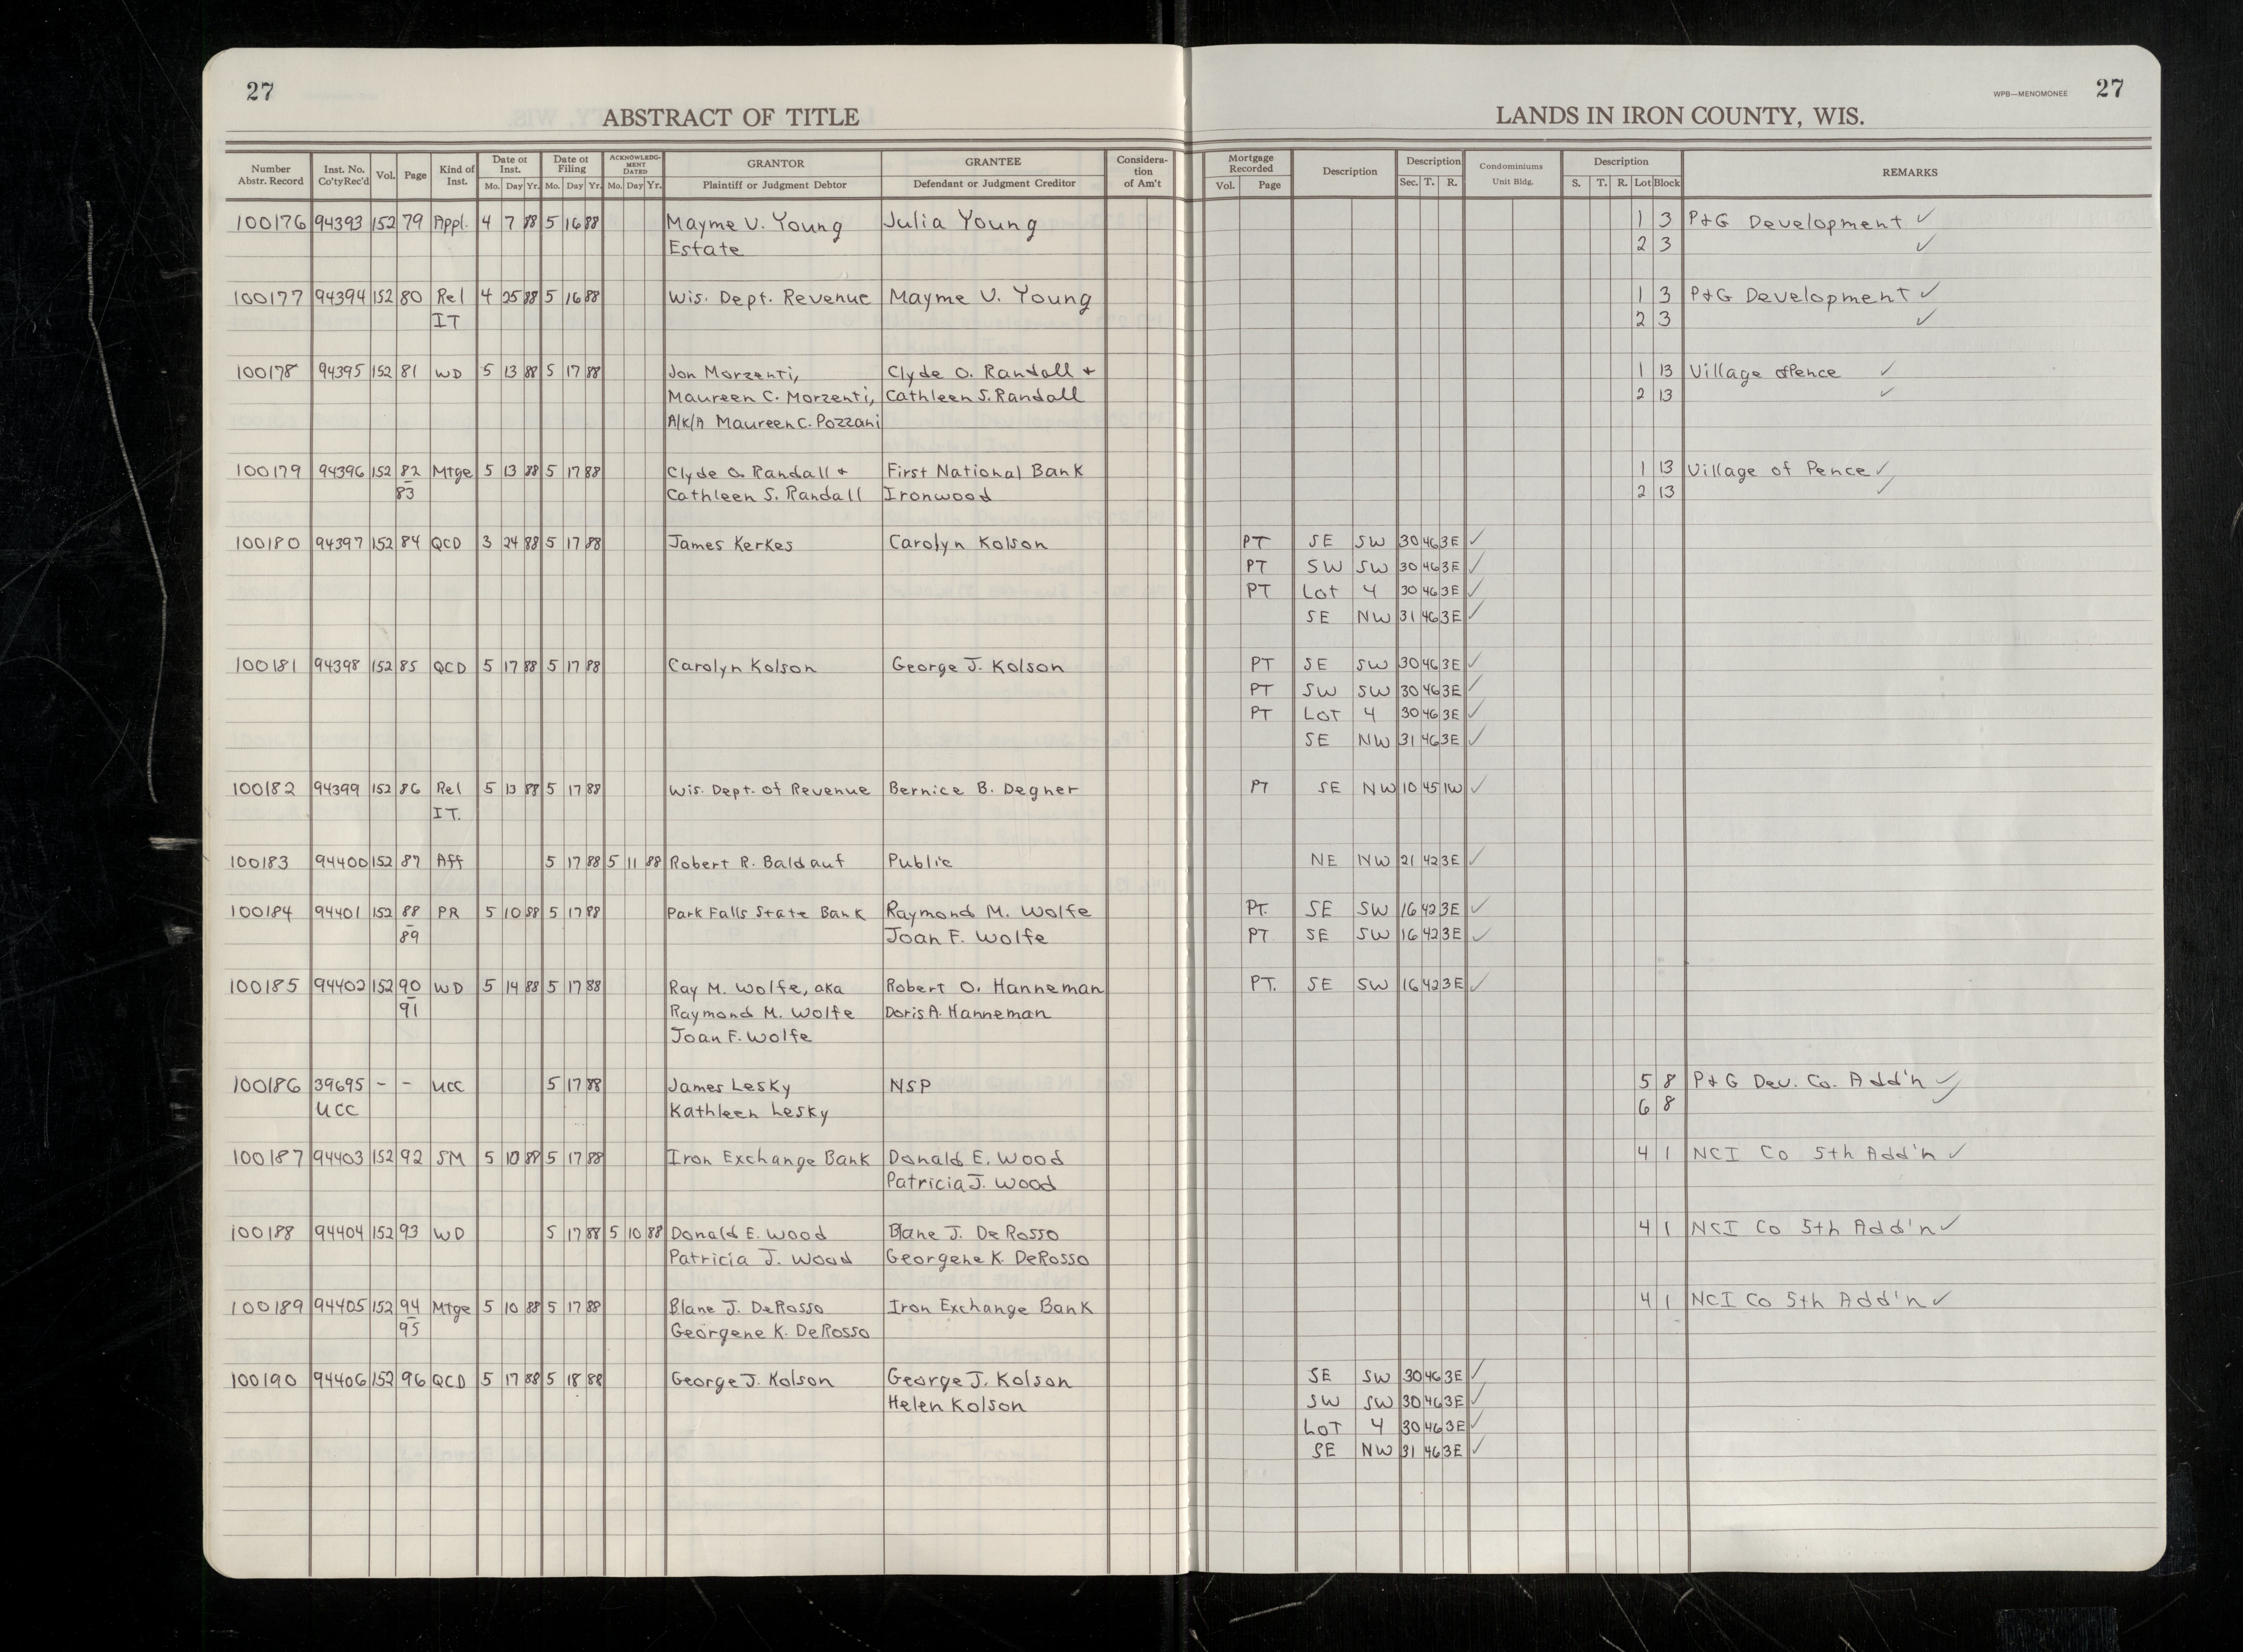 27
ABSTRACT OF TITLE
LANDS IN IRON COUNTY, WIS.
WPB—MENOMONEE 27
Number Abstr. Record Inst. No. Co'ty Rec'd Vol. Page Kind of Inst. Date of Inst. Mo. Day Yr. Date of Filing Mo. Day Yr. ACKNOWLEDGMENT DATED Mo. Day Yr. GRANTOR Plaintiff or Judgment Debtor GRANTEE Defendant or Judgment Creditor Consideration of Am't Mortgage Recorded Vol. Page Description Description Sec. T. R. Condominiums Unit Bldg. Description S. T. R. Lot Block REMARKS
100176 94393 152 79 Appl. 4 7 88 5 16 88 Mayme V. Young Julia Young 1 3 P+G Development ✓
Estate 2 3 ✓
100177 94394 152 80 Rel 4 25 88 5 16 88 Wis. Dept. Revenue Mayme V. Young 1 3 P+G Development ✓
IT 2 3 ✓
100178 94395 152 81 WD 5 13 88 5 17 88 Jon Morzenti, Clyde O. Randall + 1 13 Village of Pence ✓
Maureen C. Morzenti, Cathleen S. Randall 2 13 ✓
A/K/A Maureen C. Pozzani
100179 94396 152 82 Mtge 5 13 88 5 17 88 Clyde O. Randall + First National Bank 1 13 Village of Pence ✓
83 Cathleen S. Randall Ironwood 2 13 ✓
100180 94397 152 84 QCD 3 24 88 5 17 88 James Kerkes Carolyn Kolson PT SE SW 30 46 3E ✓
PT SW SW 30 46 3E ✓
PT Lot 4 30 46 3E ✓
SE NW 31 46 3E ✓
100181 94398 152 85 QCD 5 17 88 5 17 88 Carolyn Kolson George J. Kolson PT SE SW 30 46 3E ✓
PT SW SW 30 46 3E ✓
PT LoT 4 30 46 3E ✓
SE NW 31 46 3E ✓
100182 94399 152 86 Rel 5 13 88 5 17 88 Wis. Dept. of Revenue Bernice B. Degner PT SE NW 10 45 1W ✓
IT.
100183 94400 152 87 Aff 5 17 88 5 11 88 Robert R. Baldauf Public NE NW 21 42 3E ✓
100184 94401 152 88 PR 5 10 88 5 17 88 Park Falls State Bank Raymond M. Wolfe PT. SE SW 16 42 3E ✓
89 Joan F. Wolfe PT SE SW 16 42 3E ✓
100185 94402 152 90 WD 5 14 88 5 17 88 Ray M. Wolfe, aka Robert O. Hanneman PT. SE SW 16 42 3E ✓
91 Raymond M. Wolfe Doris A. Hanneman
Joan F. Wolfe
100186 39695 - - UCC 5 17 88 James Lesky NSP 5 8 P+G Dev. Co. Add'n ✓
UCC Kathleen Lesky 6 8 ✓
100187 94403 152 92 SM 5 10 88 5 17 88 Iron Exchange Bank Donald E. Wood 4 1 NCI Co 5th Add'n ✓
Patricia J. Wood
100188 94404 152 93 WD 5 17 88 5 10 88 Donald E. Wood Blane J. DeRosso 4 1 NCI Co 5th Add'n ✓
Patricia J. Wood Georgene K. DeRosso
100189 94405 152 94 Mtge 5 10 88 5 17 88 Blane J. DeRosso Iron Exchange Bank 4 1 NCI Co 5th Add'n ✓
95 Georgene K. DeRosso
100190 94406 152 96 QCD 5 17 88 5 18 88 George J. Kolson George J. Kolson SE SW 30 46 3E ✓
Helen Kolson SW SW 30 46 3E ✓
LoT 4 30 46 3E ✓
SE NW 31 46 3E ✓